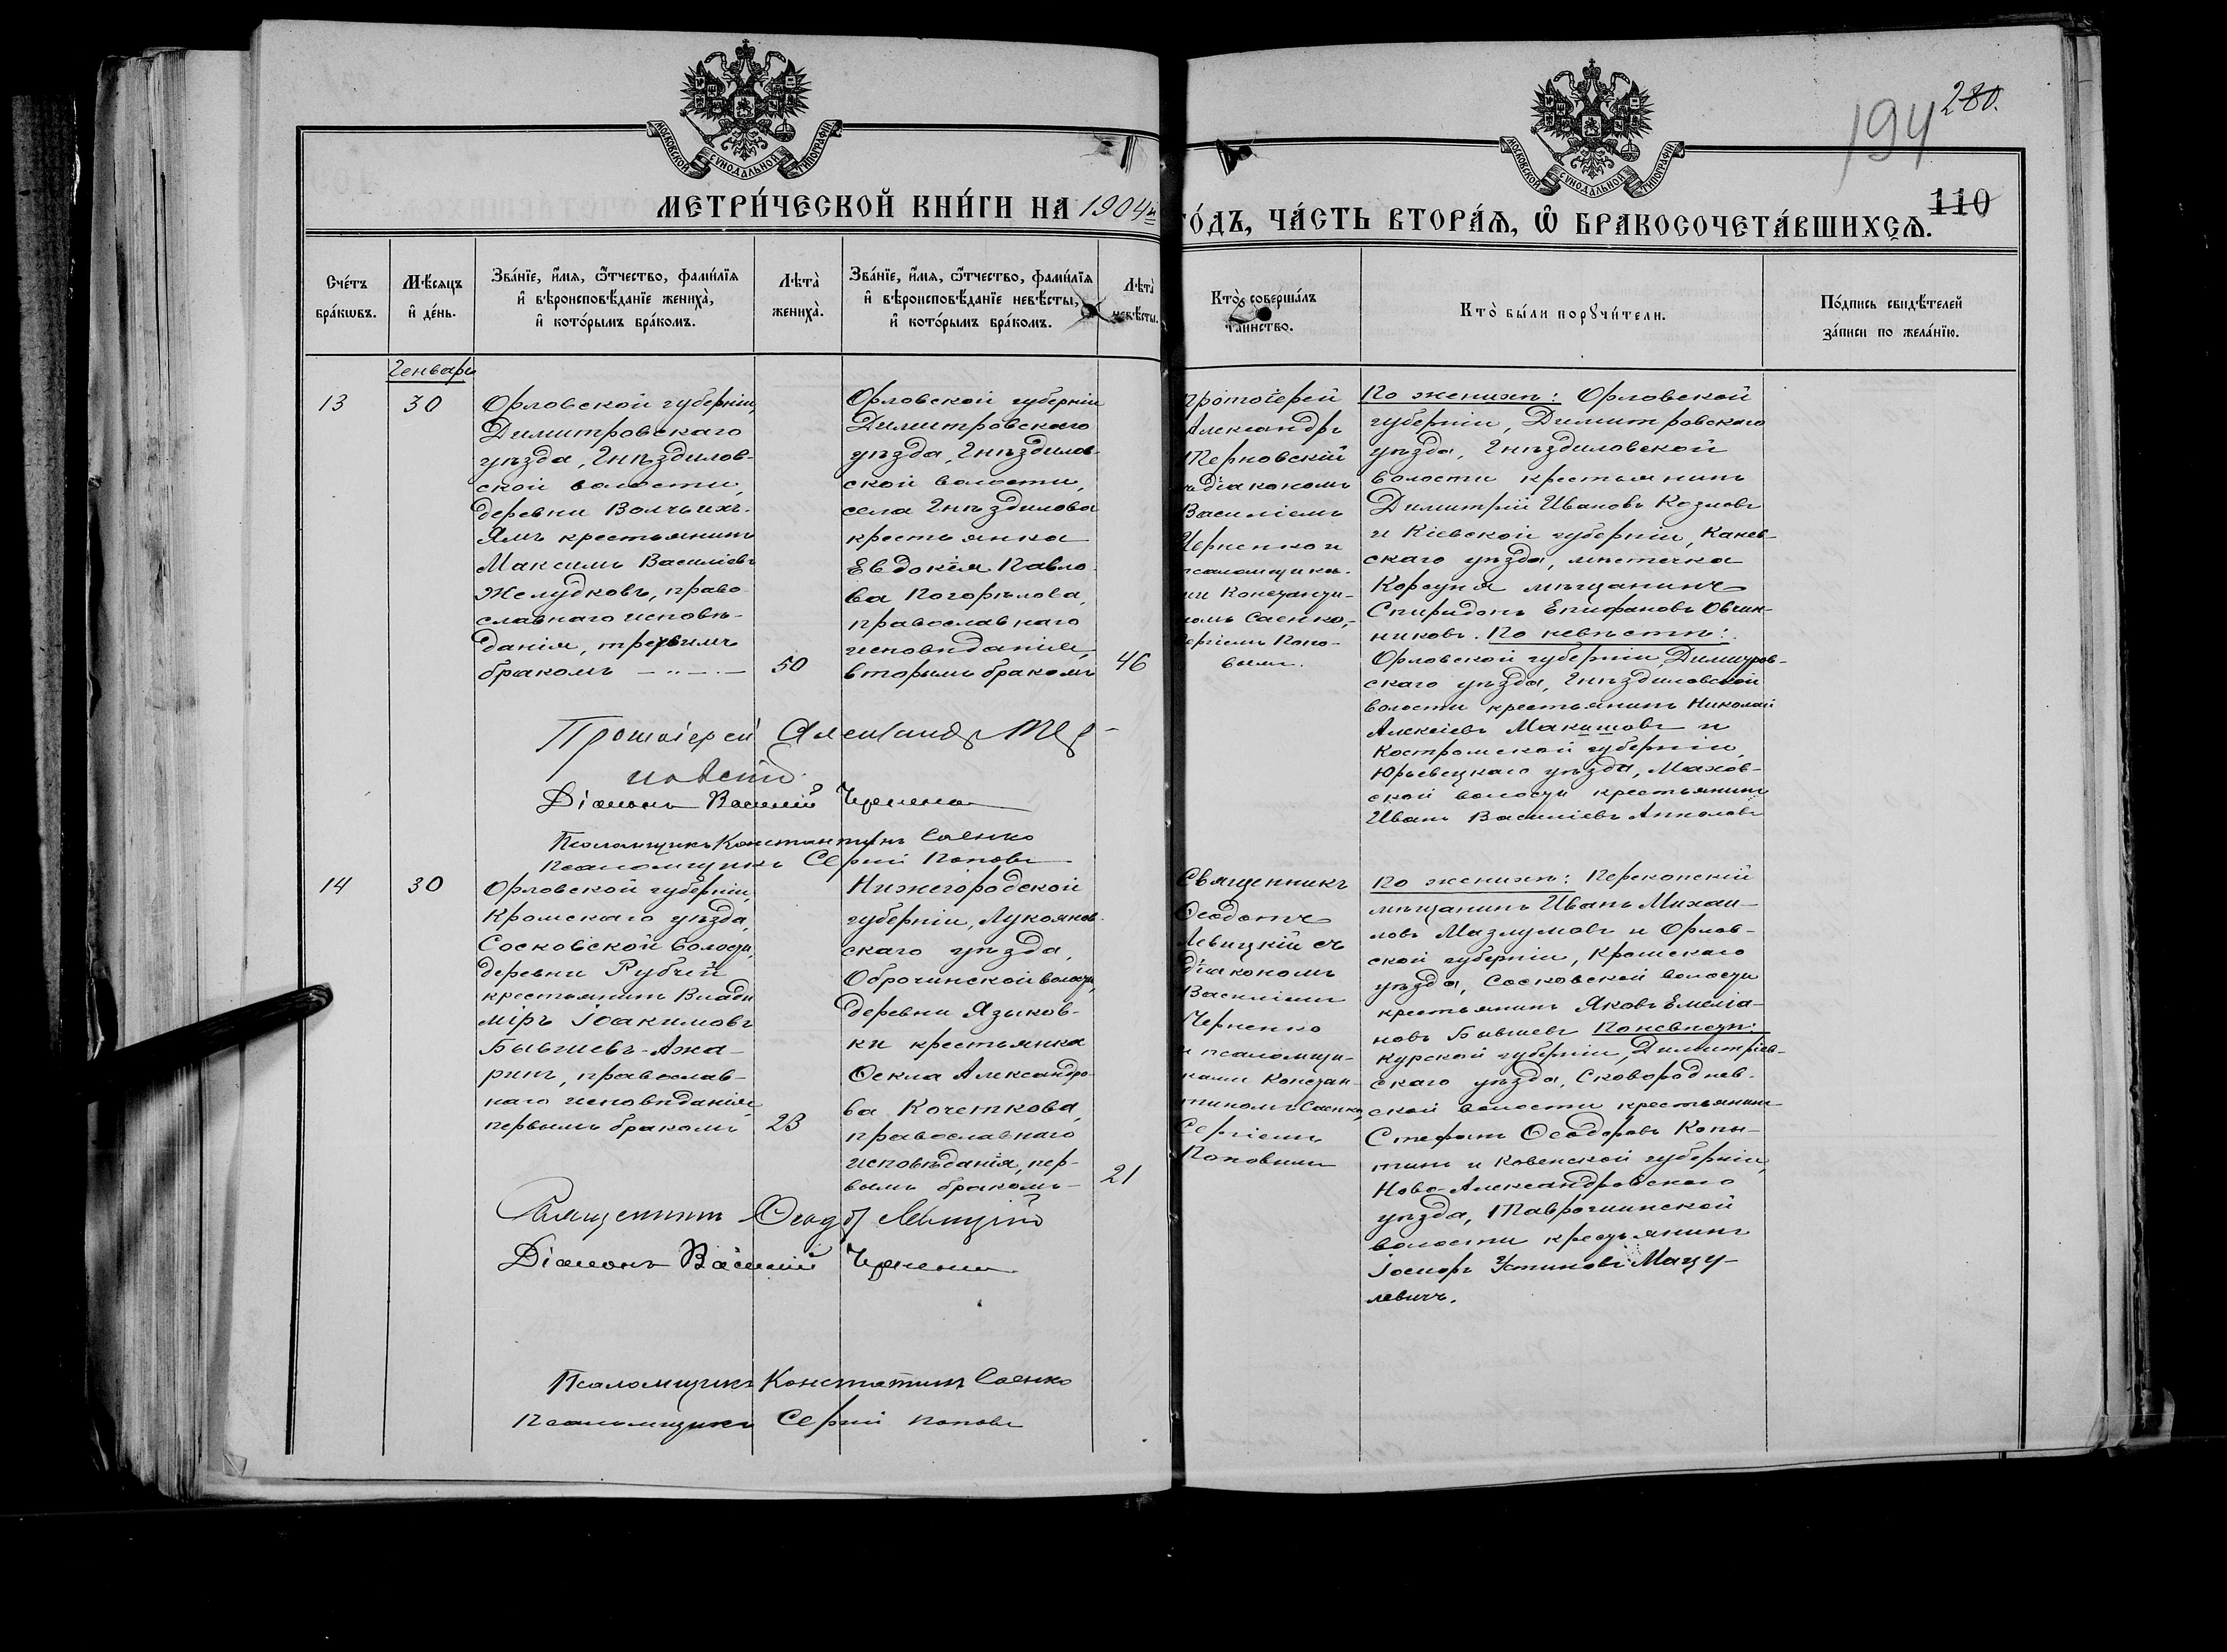 МОСКОВСКОЙ СѴНОДАЛЬНОЙ ТИПОГРАФІИ
МОСКОВСКОЙ СѴНОДАЛЬНОЙ ТИПОГРАФІИ
194 280.
110
МЕТРИ́ЧЕСКОЙ КНИ́ГИ НА 1904й
ГО́ДЪ, ЧА́СТЬ ВТОРА́Ѧ, Ѡ҆ БРАКОСОЧЕТА́ВШИХСѦ.
Сче́тъ бра́кѡвъ.
Мѣ́сяцъ и҆ де́нь.
Зва́нїе, и҆́мя, ѻ҆́тчество, фами́лїя и҆ вѣроисповѣ́данїе жениха̀, и҆ кото́рымъ бра́комъ.
Лѣта̀ жениха̀.
Зва́нїе, и҆́мя, ѻ҆́тчество, фами́лїя и҆ вѣроисповѣ́данїе невѣ́сты, и҆ кото́рымъ бра́комъ.
Лѣта̀ невѣ́сты.
Кто̀ соверша́лъ та́инство.
Кто̀ бы́ли порꙋчи́тели.
По́дпись свидѣ́телей за́писи по жела́нїю.
Генварь
13
30
Орловской губерніи,
Димитровскаго
уѣзда, Гнѣздилов-
ской волости,
деревни Волчьихъ-
Ямъ крестьянинъ
Максимъ Василіевъ
Желудковъ, право-
славнаго исповѣ-
данія, третьимъ
бракомъ
50
Орловской губерніи
Димитровскаго
уѣзда, Гнѣздилов-
ской волости,
села Гнѣздилова
крестьянка
Евдокія Павло-
ва Погорѣлова,
православнаго
исповѣданія,
вторымъ бракомъ
46
Протоіерей
Александръ
Терновскій
съ діакономъ
Василіемъ
Черненко и
псаломщика-
ми Константи-
номъ Саенко,
Сергіемъ Попо-
вымъ.
По женихѣ: Орловской
губерніи, Димитровскаго
уѣзда, Гнѣздиловской
волости крестьянинъ
Димитрій Ивановъ Козловъ
и Кіевской губерніи, Канев-
скаго уѣзда, мѣстечка
Корсуня мѣщанинъ
Спиридонъ Епифановъ Овчин-
никовъ. По невѣстѣ:
Орловской губерніи, Димитров-
скаго уѣзда, Гнѣздиловской
волости крестьянинъ Николай
Алексіевъ Макашовъ и
Костромской губерніи,
Юрьевецкаго уѣзда, Махов-
ской волости крестьянинъ
Иванъ Василіевъ Апполовъ
Протоіерей Александръ Тер-
новскій.
Діаконъ Василій Черненко
Псаломщикъ Константинъ Саенко
Псаломщикъ Сергій Поповъ
14
30
Орловской губерніи,
Кромскаго уѣзда,
Сосковской волости,
деревни Рубчей
крестьянинъ Влади-
міръ Іоакимовъ
Бывшевъ-Ажа-
ринъ, православ-
наго исповѣданія,
первымъ бракомъ
23
Нижегородской
губерніи, Лукоянов-
скаго уѣзда,
Оброчинской волости,
деревни Языков-
ки крестьянка
Ѳекла Александро-
ва Кочеткова,
православнаго
исповѣданія, пер-
вымъ бракомъ
21
Священникъ
Ѳеодотъ
Левицкій съ
діакономъ
Василіемъ
Черненко
и псаломщи-
ками Констан-
тиномъ Саенко,
Сергіемъ
Поповымъ
По женихѣ: Перекопскій
мѣщанинъ Иванъ Михаи-
ловъ Мазлумовъ и Орлов-
ской губерніи, Кромскаго
уѣзда, Сосковской волости
крестьянинъ Яковъ Емелiа-
новъ Бывшевъ По невѣстѣ:
Курской губерніи, Димитріев-
скаго уѣзда, Сковороднев-
ской волости крестьянинъ
Стефанъ Ѳеодоровъ Копы-
тинъ и Ковенской губерніи,
Ново-Александровскаго
уѣзда, Таврогинской
волости крестьянинъ
Іосифъ Устиновъ Мацу-
левичъ.
Священникъ Ѳеодотъ Левицкій
Діаконъ Василій Черненко
Псаломщикъ Константинъ Саенко
Псаломщикъ Сергій Поповъ